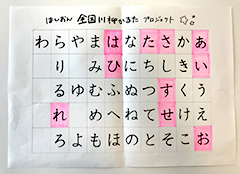 はしおん 全国川柳かるた プロジェクト
あいうえお
かきくけこ
さしすせそ
たちつてと
なにぬねの
はひふへほ
まみむめも
やゆよ
らりるれろ
わ